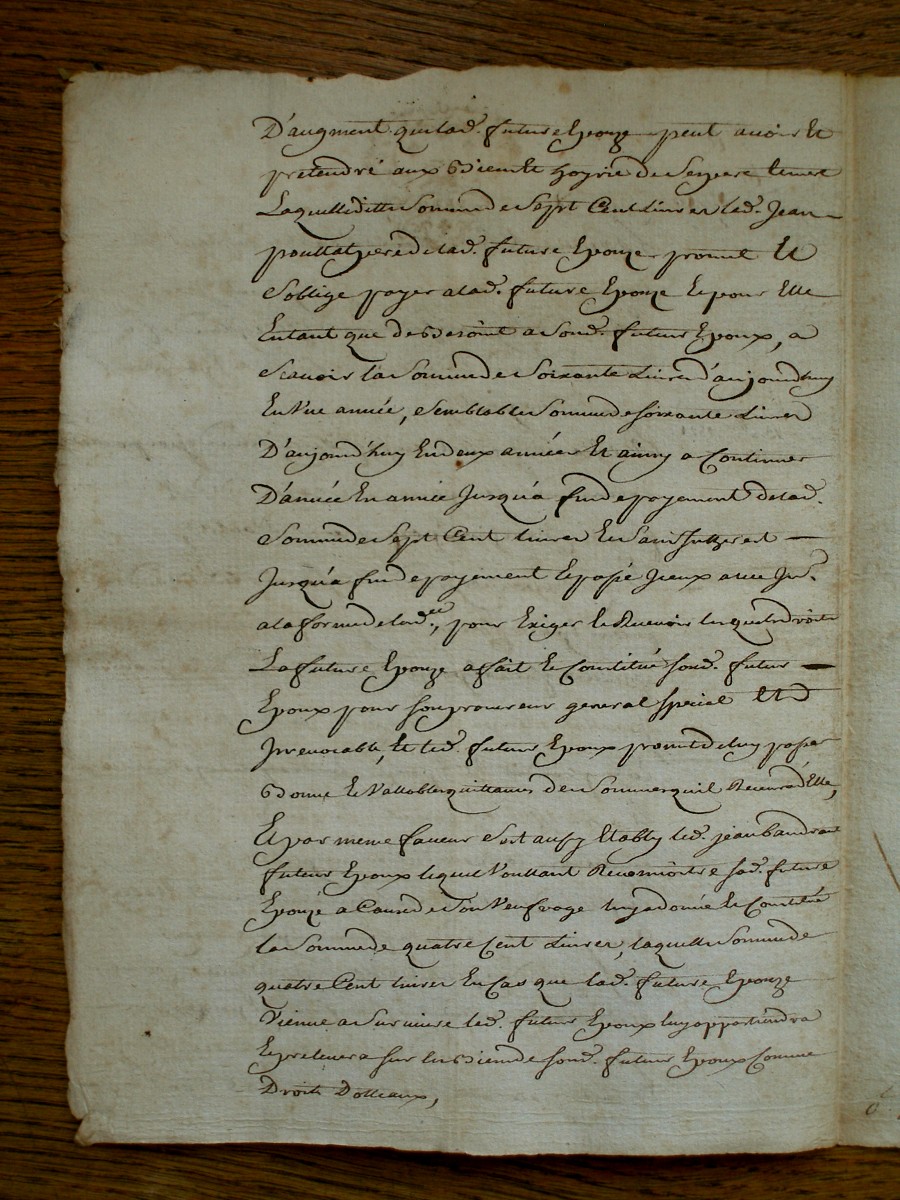 D'augment que lad. future Epouze peut avoir Et
pretendre aux Biens et hoyrie de Se pere et mere
Laquelle ditte Somme de Sept Cent Livres led. Jean
pere de lad. future Epouze promet Et
S'oblige payer a lad. future Epouze Et pour Elle
Entant que de Besoint a Sond. futur Epoux, a
Scavoir la Somme de Soixante Livres d'aujourdhuy
En Vne année, Semblable Somme de Soixante Livres
D'aujourd'huy En deux années Et ainsy a Continuer
D'année En année Jusqu'a fin de payement de lad.
Somme de Sept Cent livres Et Sans Intherest
Jusqu'a fin de payement Et passé Iceux avec In.
a la forme de lord.ce, pour Exiger Et Recevoir lesquels droits
La future Epouze a fait Et Constitué Sond. futur
Epoux pour Son procureur general Special Et
Irrevocable, Et led. futur Epoux promet de luy passer
Bonne Et Vallable quittance des Sommes qu'il Recevra d'Elle,
Et par meme faveur S'est aussy Etably led. jean
futur Epoux lequel Voullant Reconnoitre Sad. future
Epouze a Cause de Son Veufvage luy a donné Et Constitué
la Somme de quatre Cent Livres, laquelle Somme de
quatre Cent livres En Cas que lad. future Epouze
Vienne a Survivre led. futur Epoux luy appartiendra
Et prelevera sur les Biens de Sond. futur Epoux Comme
Droits Dotteaux,